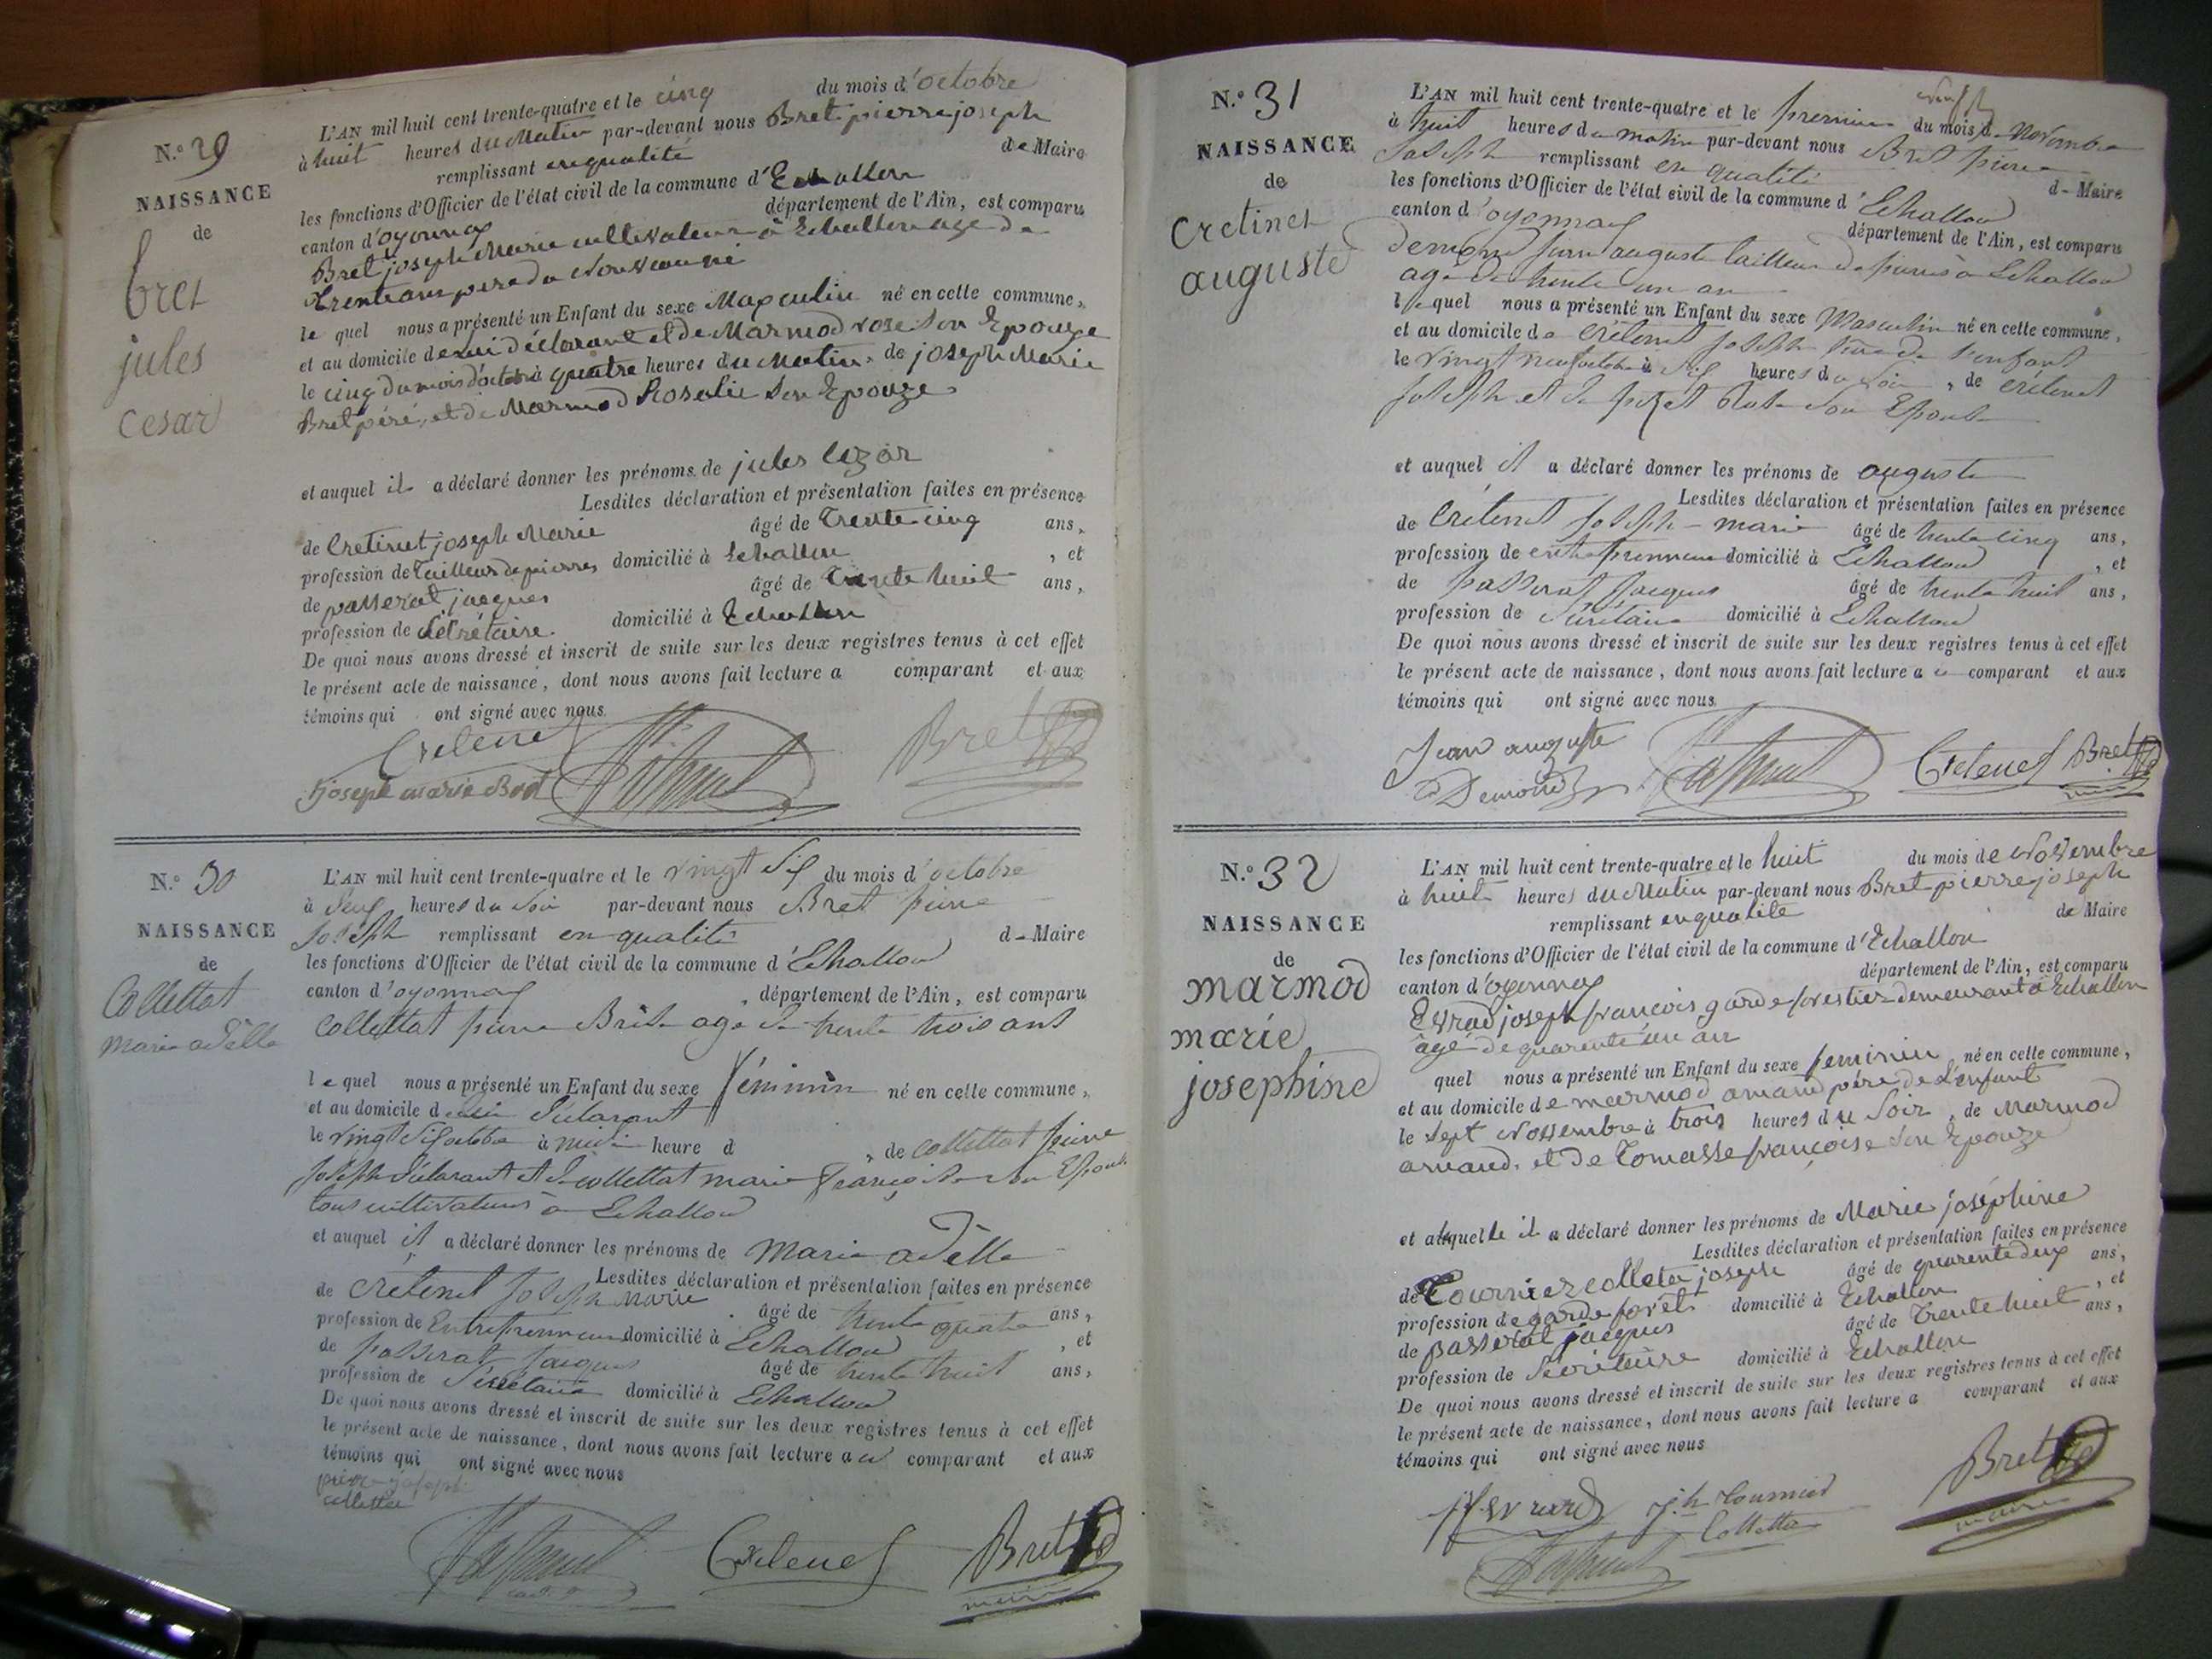 N.° 29
NAISSANCE
de
bret
jules
cesar
L'AN mil huit cent trente-quatre et le cinq du mois d'octobre
à huit heures du Matin par-devant nous Bret pierre joseph
remplissant en qualité de Maire
les fonctions d'Officier de l'état civil de la commune d'Echallon
canton d'oyonnax département de l'Ain, est comparu
Bret joseph Marie cultivateur à Echallon age de
trente ans pere du Nouveau né
le quel nous a présenté un Enfant du sexe Masculin né en cette commune,
et au domicile de lui déclarant et de Marmod rose son Epouze
le cinq du mois d'octobre à quatre heures du Matin, de joseph Marie
Bret péré, et de Marmod Rosalie son Epouze
et auquel il a déclaré donner les prénoms de jules cezar
Lesdites déclaration et présentation faites en présence
de Cretinet joseph Marie âgé de trente cinq ans,
profession de Tailleur de pierres domicilié à Echallon, et
de passerat jacques âgé de trente huit ans,
profession de Sécrétaire domicilié à Echallon
De quoi nous avons dressé et inscrit de suite sur les deux registres tenus à cet effet
le présent acte de naissance, dont nous avons fait lecture a comparant et aux
témoins qui ont signé avec nous
Cretenet
joseph marie Bret Bret
N.° 30
NAISSANCE
de
Collettat
marie adèlle
L'AN mil huit cent trente-quatre et le vingt six du mois d'octobre
à heures du Soir par-devant nous Bret pierre
joseph remplissant en qualité d Maire
les fonctions d'Officier de l'état civil de la commune d'Echallon
canton d'oyonnax, département de l'Ain, est comparu
Collettat pierre agé de trente trois ans
le quel nous a présenté un Enfant du sexe féminin né en cette commune,
et au domicile de lui déclarant
le vingt six octobre à midi heure d, de collettat pierre
joseph déclarant et de collettat marie françoise son Epouse
tous cultivateurs à Echallon
et auquel il a déclaré donner les prénoms de marie adèlle
Lesdites déclaration et présentation faites en présence
de Crétenet joseph marie âgé de trente quatre ans,
profession de Entreprenneur domicilié à Echallon, et
de passerat jacques âgé de trente huit ans,
profession de Sécrétaire domicilié à Echallon
De quoi nous avons dressé et inscrit de suite sur les deux registres tenus à cet effet
le présent acte de naissance, dont nous avons fait lecture a comparant et aux
témoins qui ont signé avec nous
pierre joseph
collettat
Cretenet Bret
maire
N.° 31
NAISSANCE
de
Cretinet
auguste
L'AN mil huit cent trente-quatre et le premier du mois d Novembre
à huit heures du matin par-devant nous Bret pierre
Joseph remplissant en qualité d Maire
les fonctions d'Officier de l'état civil de la commune d'Echallon
canton d'oyonnax département de l'Ain, est comparu
Demond jean auguste tailleur de pierres à Echallon
age de trente un an
le quel nous a présenté un Enfant du sexe Masculin né en cette commune,
et au domicile de Crétenet joseph père de l'enfant
le vingt neuf octobre à six heures du soir, de crétenet
joseph et de son Epouse
et auquel il a déclaré donner les prénoms de auguste
Lesdites déclaration et présentation faites en présence
de Crétenet Joseph marie âgé de trente cinq ans,
profession de entreprenneur domicilié à Echallon, et
de passerat jacques âgé de trente huit ans,
profession de Sécrétaire domicilié à Echallon
De quoi nous avons dressé et inscrit de suite sur les deux registres tenus à cet effet
le présent acte de naissance, dont nous avons fait lecture a comparant et aux
témoins qui ont signé avec nous
Jean auguste
Demond Cretenet Bret
N.° 32
NAISSANCE
de
marmod
marie
josephine
L'AN mil huit cent trente-quatre et le huit du mois de Novembre
à huit heures du Matin par-devant nous Bret pierre joseph
remplissant en qualité de Maire
les fonctions d'Officier de l'état civil de la commune d'Echallon
canton d'oyonnax département de l'Ain, est comparu
Evrad joseph francois garde forestier demeurant à Echallon
âgé de quarente un an
quel nous a présenté un Enfant du sexe feminin né en cette commune,
et au domicile de marmod armand père de l'enfant
le sept Novembre à trois heures du Soir, de Marmod
armand, et de Tomasse françoise son Epouze
et alaquelle il a déclaré donner les prénoms de Marie joséphine
Lesdites déclaration et présentation faites en présence
de Tournier colleta joseph âgé de quarente deux ans,
profession de garde forêt domicilié à Echallon, et
de passerat jacques âgé de trente huit ans,
profession de Sécrétaire domicilié à Echallon
De quoi nous avons dressé et inscrit de suite sur les deux registres tenus à cet effet
le présent acte de naissance, dont nous avons fait lecture a comparant et aux
témoins qui ont signé avec nous
Evrard jh tournier Bret
Colletta maire